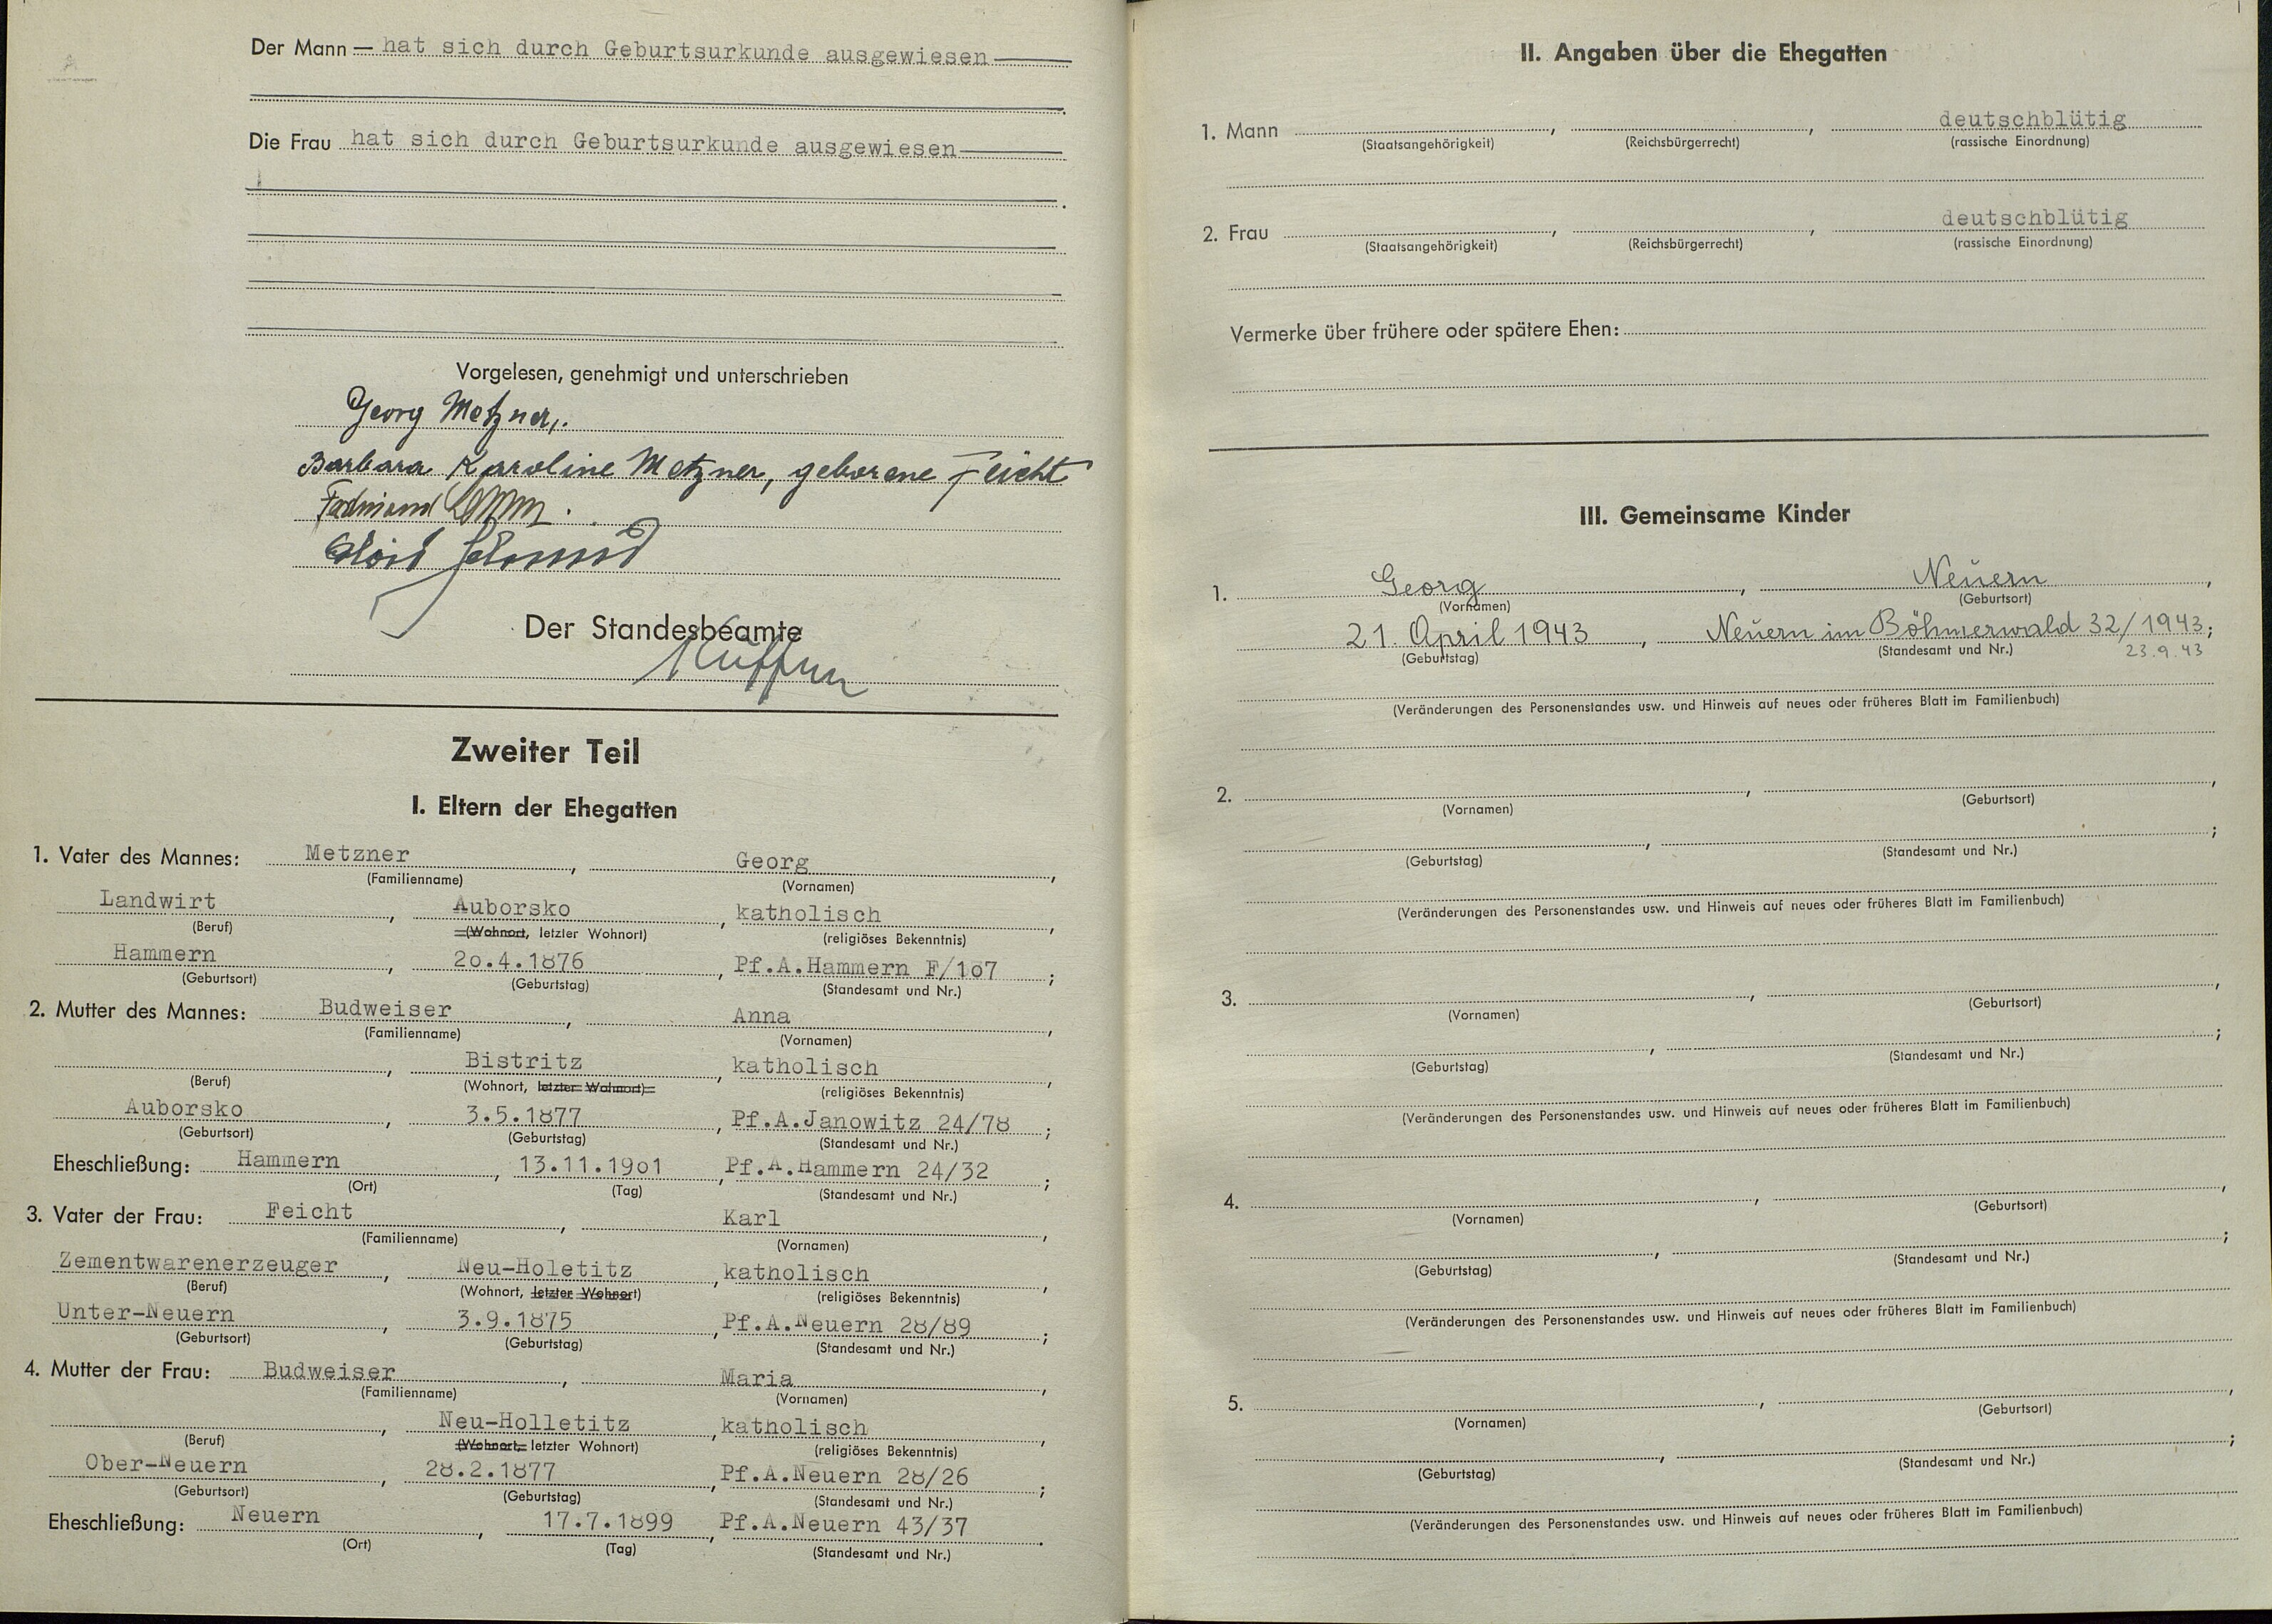 Der Mann — hat sich durch Geburtsurkunde ausgewiesen
Die Frau hat sich durch Geburtsurkunde ausgewiesen
Vorgelesen, genehmigt und unterschrieben
Georg Metzner,.
Barbara Karoline Metzner, geborene Feicht
Ferdinand
Alois Schmid
Der Standesbeamte
Zweiter Teil
I. Eltern der Ehegatten
1. Vater des Mannes: Metzner, Georg,
(Familienname) (Vornamen)
Landwirt, Auborsko, katholisch,
(Beruf) (Wohnort, letzter Wohnort) (religiöses Bekenntnis)
Hammern, 2o.4.1876, Pf.A.Hammern F/1o7;
(Geburtsort) (Geburtstag) (Standesamt und Nr.)
2. Mutter des Mannes: Budweiser, Anna,
(Familienname) (Vornamen)
, Bistritz, katholisch,
(Beruf) (Wohnort, letzter Wohnort) (religiöses Bekenntnis)
Auborsko, 3.5.1877, Pf.A.Janowitz 24/78;
(Geburtsort) (Geburtstag) (Standesamt und Nr.)
Eheschließung: Hammern, 13.11.19o1, Pf.A.Hammern 24/32;
(Ort) (Tag) (Standesamt und Nr.)
3. Vater der Frau: Feicht, Karl,
(Familienname) (Vornamen)
Zementwarenerzeuger, Neu-Holetitz, katholisch,
(Beruf) (Wohnort, letzter Wohnort) (religiöses Bekenntnis)
Unter-Neuern, 3.9.1875, Pf.A.Neuern 28/89;
(Geburtsort) (Geburtstag) (Standesamt und Nr.)
4. Mutter der Frau: Budweiser, Maria,
(Familienname) (Vornamen)
, Neu-Holletitz, katholisch,
(Beruf) (Wohnort, letzter Wohnort) (religiöses Bekenntnis)
Ober-Neuern, 28.2.1877, Pf.A.Neuern 28/26;
(Geburtsort) (Geburtstag) (Standesamt und Nr.)
Eheschließung: Neuern, 17.7.1899, Pf.A.Neuern 43/37.
(Ort) (Tag) (Standesamt und Nr.)
II. Angaben über die Ehegatten
1. Mann , , deutschblütig
(Staatsangehörigkeit) (Reichsbürgerrecht) (rassische Einordnung)
2. Frau , , deutschblütig
(Staatsangehörigkeit) (Reichsbürgerrecht) (rassische Einordnung)
Vermerke über frühere oder spätere Ehen:
III. Gemeinsame Kinder
1. Georg, Neuern,
(Vornamen) (Geburtsort)
21. April 1943, Neuern im Böhmerwald 32/1943;
(Geburtstag) (Standesamt und Nr.) 23.9.43
(Veränderungen des Personenstandes usw. und Hinweis auf neues oder früheres Blatt im Familienbuch)
2. , ,
(Vornamen) (Geburtsort)
, ;
(Geburtstag) (Standesamt und Nr.)
(Veränderungen des Personenstandes usw. und Hinweis auf neues oder früheres Blatt im Familienbuch)
3. , ,
(Vornamen) (Geburtsort)
, ;
(Geburtstag) (Standesamt und Nr.)
(Veränderungen des Personenstandes usw. und Hinweis auf neues oder früheres Blatt im Familienbuch)
4. , ,
(Vornamen) (Geburtsort)
, ;
(Geburtstag) (Standesamt und Nr.)
(Veränderungen des Personenstandes usw. und Hinweis auf neues oder früheres Blatt im Familienbuch)
5. , ,
(Vornamen) (Geburtsort)
, ;
(Geburtstag) (Standesamt und Nr.)
(Veränderungen des Personenstandes usw. und Hinweis auf neues oder früheres Blatt im Familienbuch)